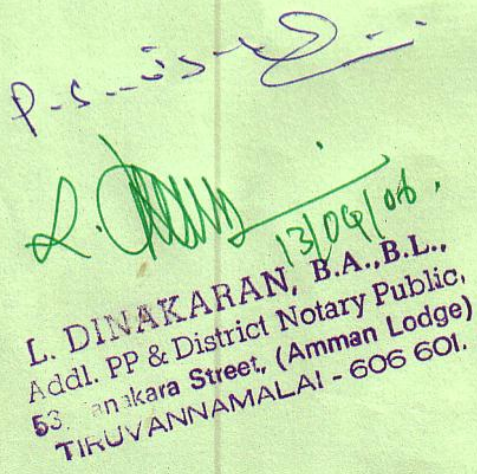 P.S.
L. 
13/04/06.
L. DINAKARAN, B.A.,B.L.,
Addl. PP & District Notary Public,
53. Street, (Amman Lodge)
TIRUVANNAMALAI - 606 601.